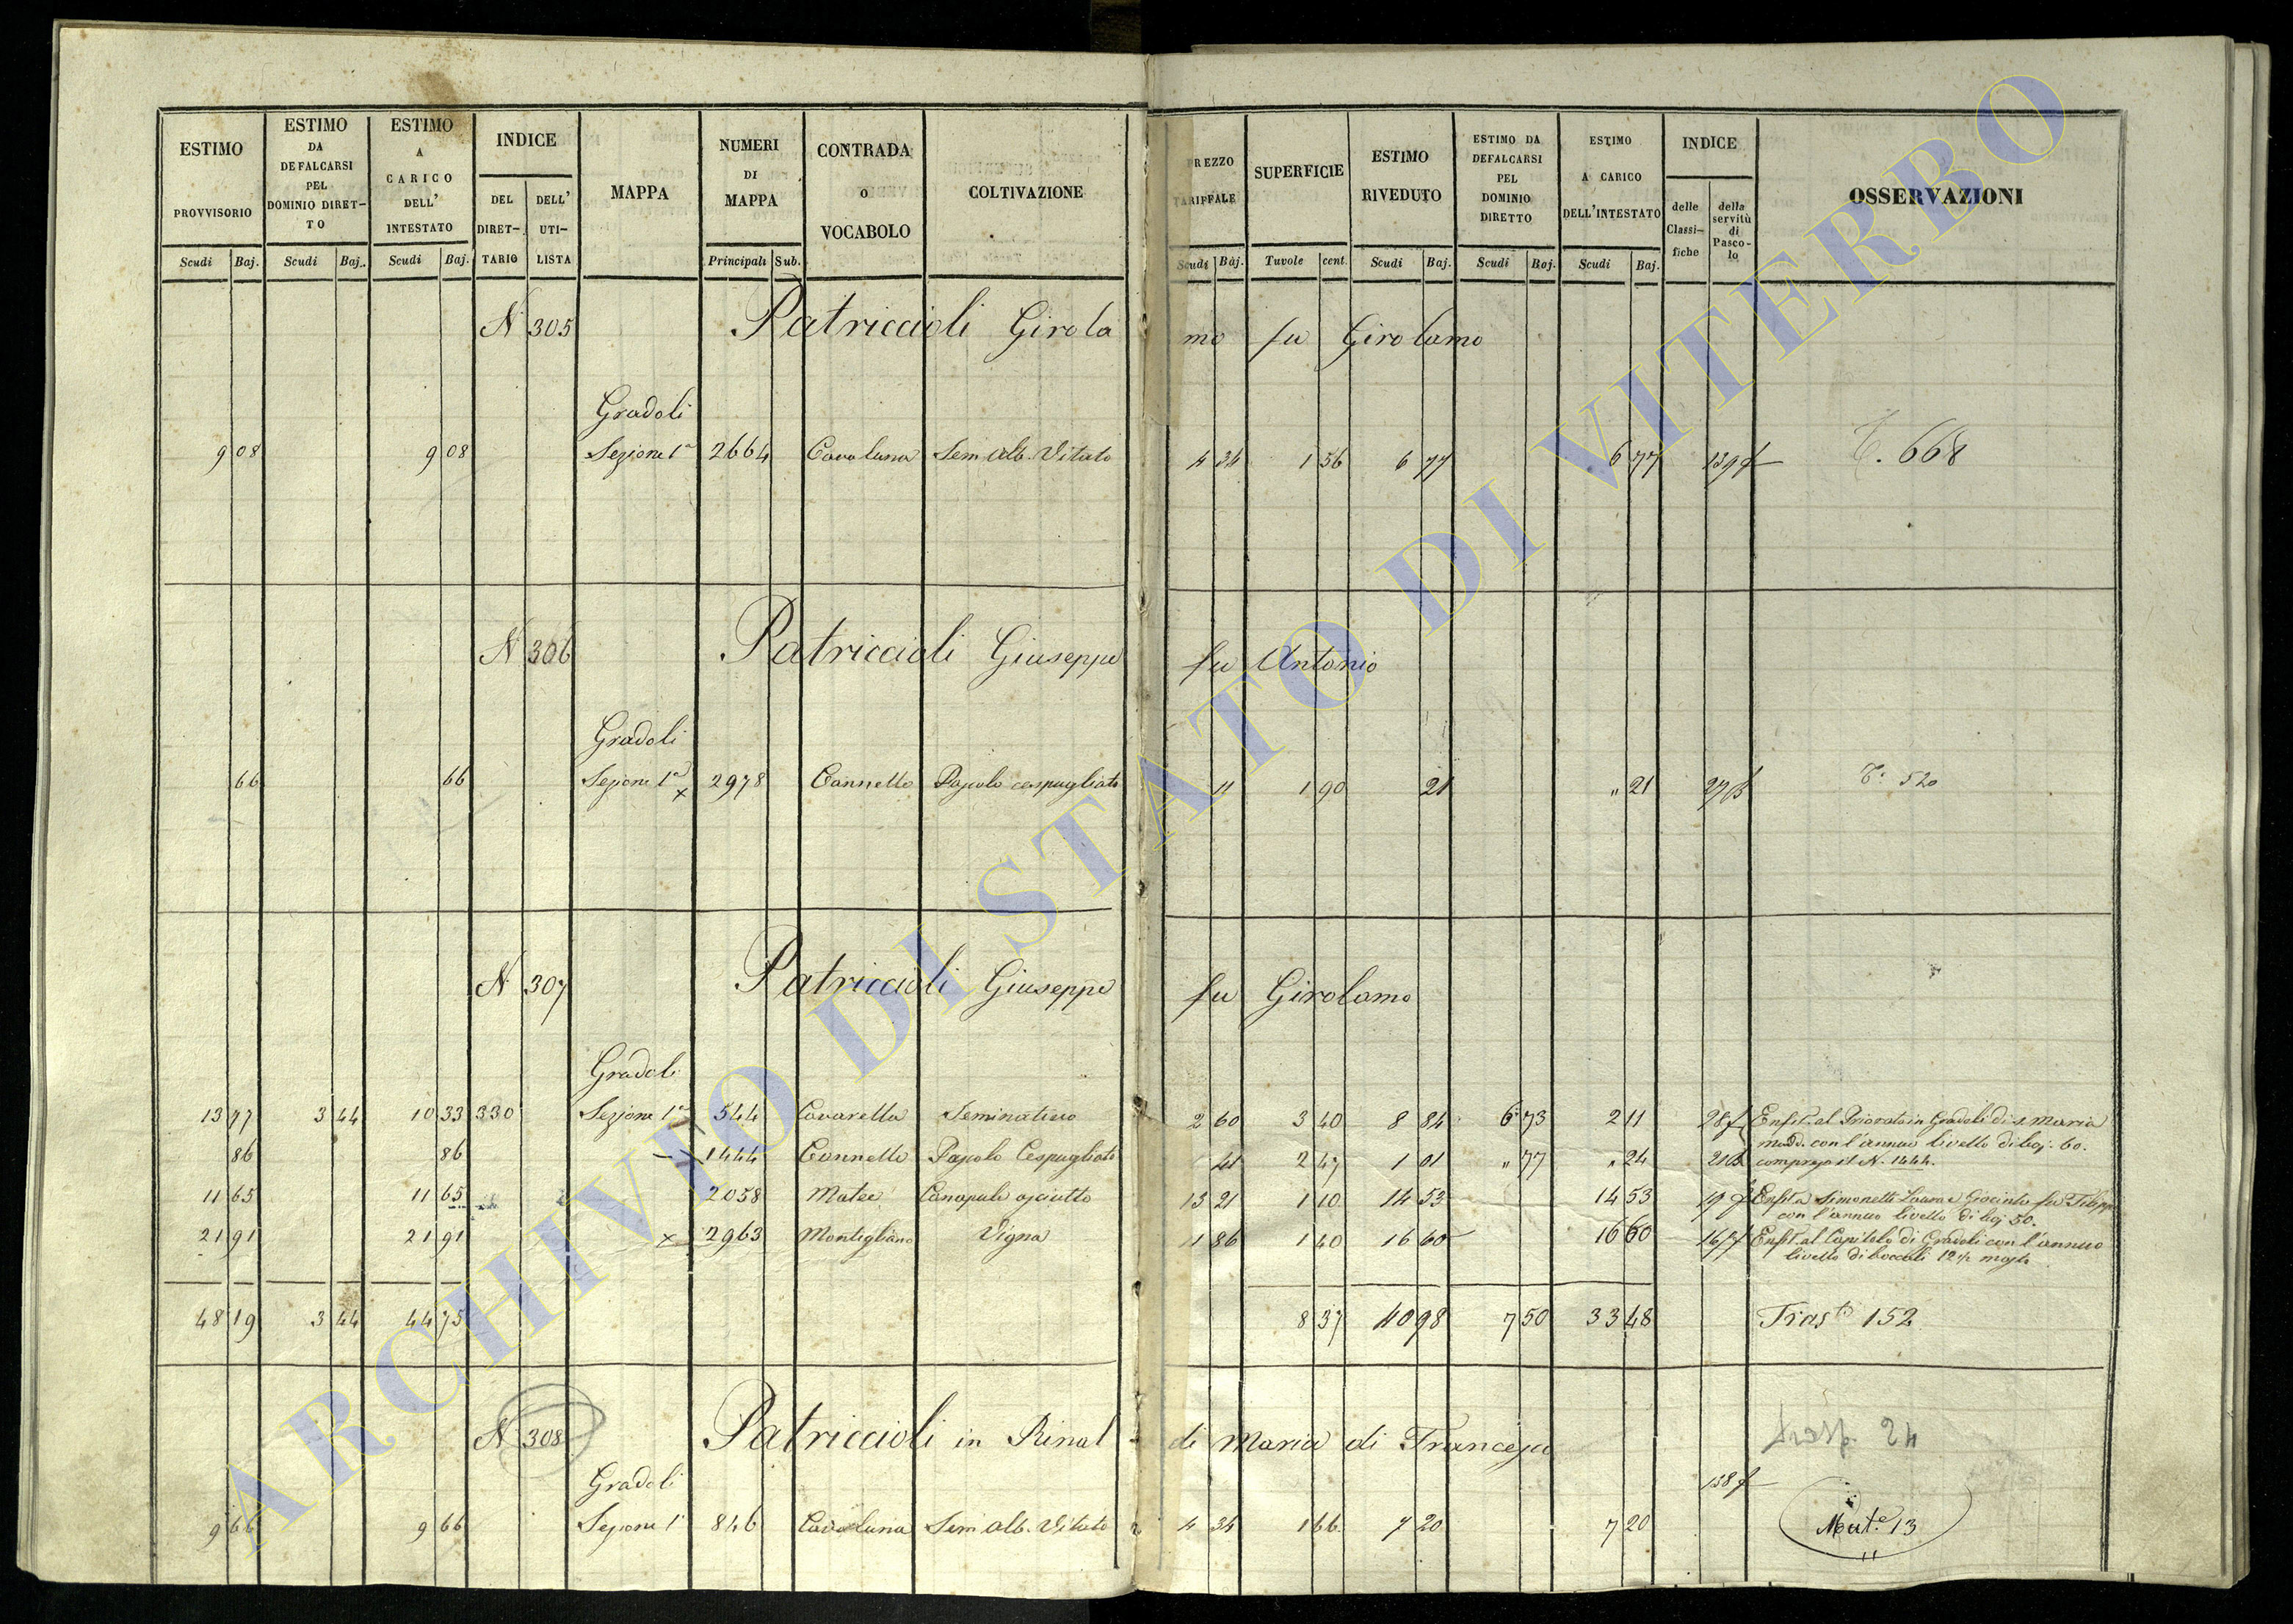 ESTIMO PROVVISORIO Scudi Baj.
ESTIMO DA DEFALCARSI PEL DOMINIO DIRET-TO Scudi Baj.
ESTIMO A CARICO DELL' INTESTATO Scudi Baj.
INDICE DEL DIRET-TARIO DELL' UTI-LISTA
MAPPA
NUMERI DI MAPPA Principali Sub.
CONTRADA O VOCABOLO
COLTIVAZIONE
PREZZO TARIFFALE Scudi Baj.
SUPERFICIE Tavole cent.
ESTIMO RIVEDUTO Scudi Baj.
ESTIMO DA DEFALCARSI PEL DOMINIO DIRETTO Scudi Baj.
ESTIMO A CARICO DELL'INTESTATO Scudi Baj.
INDICE delle Classi-fiche della servitù di Pasco-lo
OSSERVAZIONI
N 305 Patriccioli Girola mo fu Girolamo
Gradoli
9 08 9 08 Sezione 1a 2664 Cavaluna Sem. Alb. Vitato 4 34 1 56 6 77 6 77 139 f T. 668
N 306 Patriccioli Giuseppe fu Antonio
Gradoli
66 66 Sezione 1a x 2978 Cannetto Pascolo cespugliato 11 1 90 21 " 21 27 T. 520
N 307 Patriccioli Giuseppe fu Girolamo
Gradoli
13 77 3 44 10 33 330 Sezione 1a 544 Cavarella Seminativo 2 60 3 40 8 84 6 73 2 11 28 f Enfit. al Priorato in Gradoli di s. Maria
Madd. con l'annuo livello di baj. 60.
86 86 1444 Cannetto Pascolo Cespugliato 41 2 47 1 01 " 77 " 24 21 compreso il N. 1444.
11 65 11 65 2058 Matee Canapule asciutto 13 21 1 10 14 53 14 53 19 f Enfit. a Simonetti Laura e Giacinto fu Filippo
con l'annuo livello di baj. 50.
21 91 21 91 x 2963 Montigliano Vigna 11 86 1 40 16 60 16 60 16 f Enfit. al Capitolo di Gradoli con l'annuo
livello di boccali 12 1/2 mosto
48 19 3 44 44 75 8 37 40 98 7 50 33 48 Trasto 152
N 308 Patriccioli in Rinal di Maria di Francesco Trasp. 24
Gradoli 138 f
9 66 9 66 Sezione 1a 846 Cavaluna Sem. Alb. Vitato 4 34 1 66 7 20 7 20 Mut.e 13
ARCHIVIO DI STATO DI VITERBO